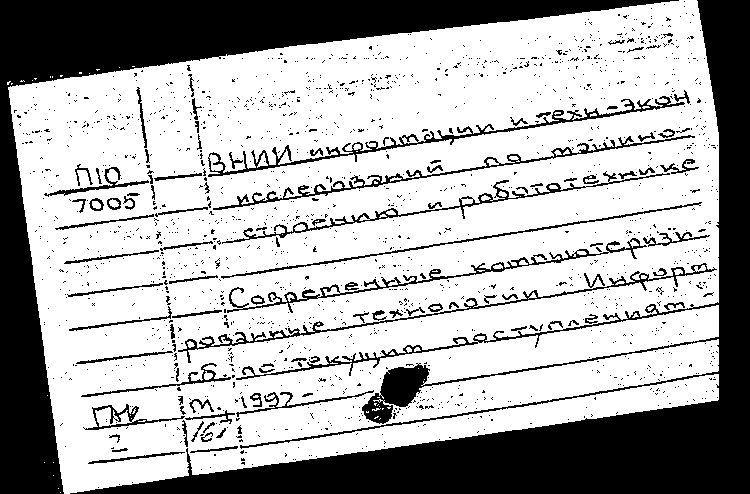 П10
7005
ВНИИ информации и техн.-экон.
исследований по машино-
строению и робототехнике
Современные компьютеризи-
рованные технологии - Информ.
сб. по текущим поступлениям. -
М., 1992 -